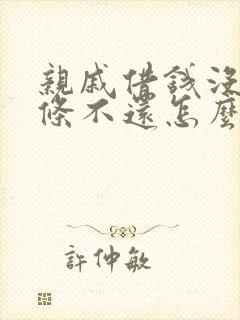 親戚借錢沒
條不還怎麼
許仲敏